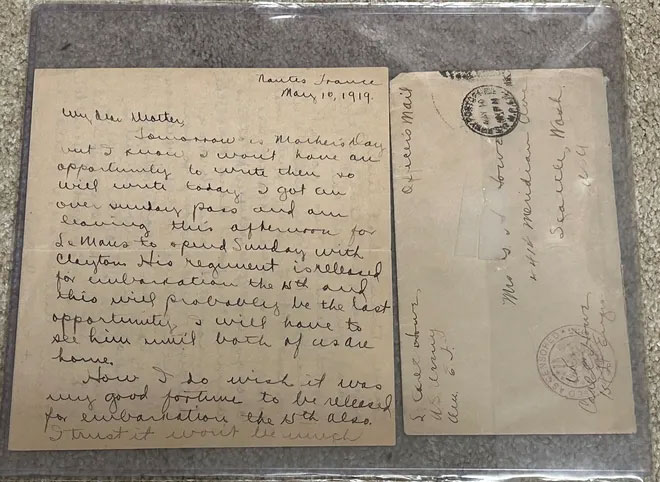 Nantes France
May 10, 1919.
My dear Mother,
Tomorrow is Mother's Day
but I know I won't have an
opportunity to write then so
will write today. I got an
over sunday pass and am
leaving this afternoon for
Le Mans to spend Sunday with
Clayton. His regiment is released
for embarkation the 15th and
this will probably be the last
opportunity I will have to
see him until both of us are
home.
How I do wish it was
my good fortune to be released
for embarkation the 15th also.
I trust it won't be much
Officers Mail
Mrs
Meridian Ave
Seattle, Wash.
U.S.A
U.S. Army